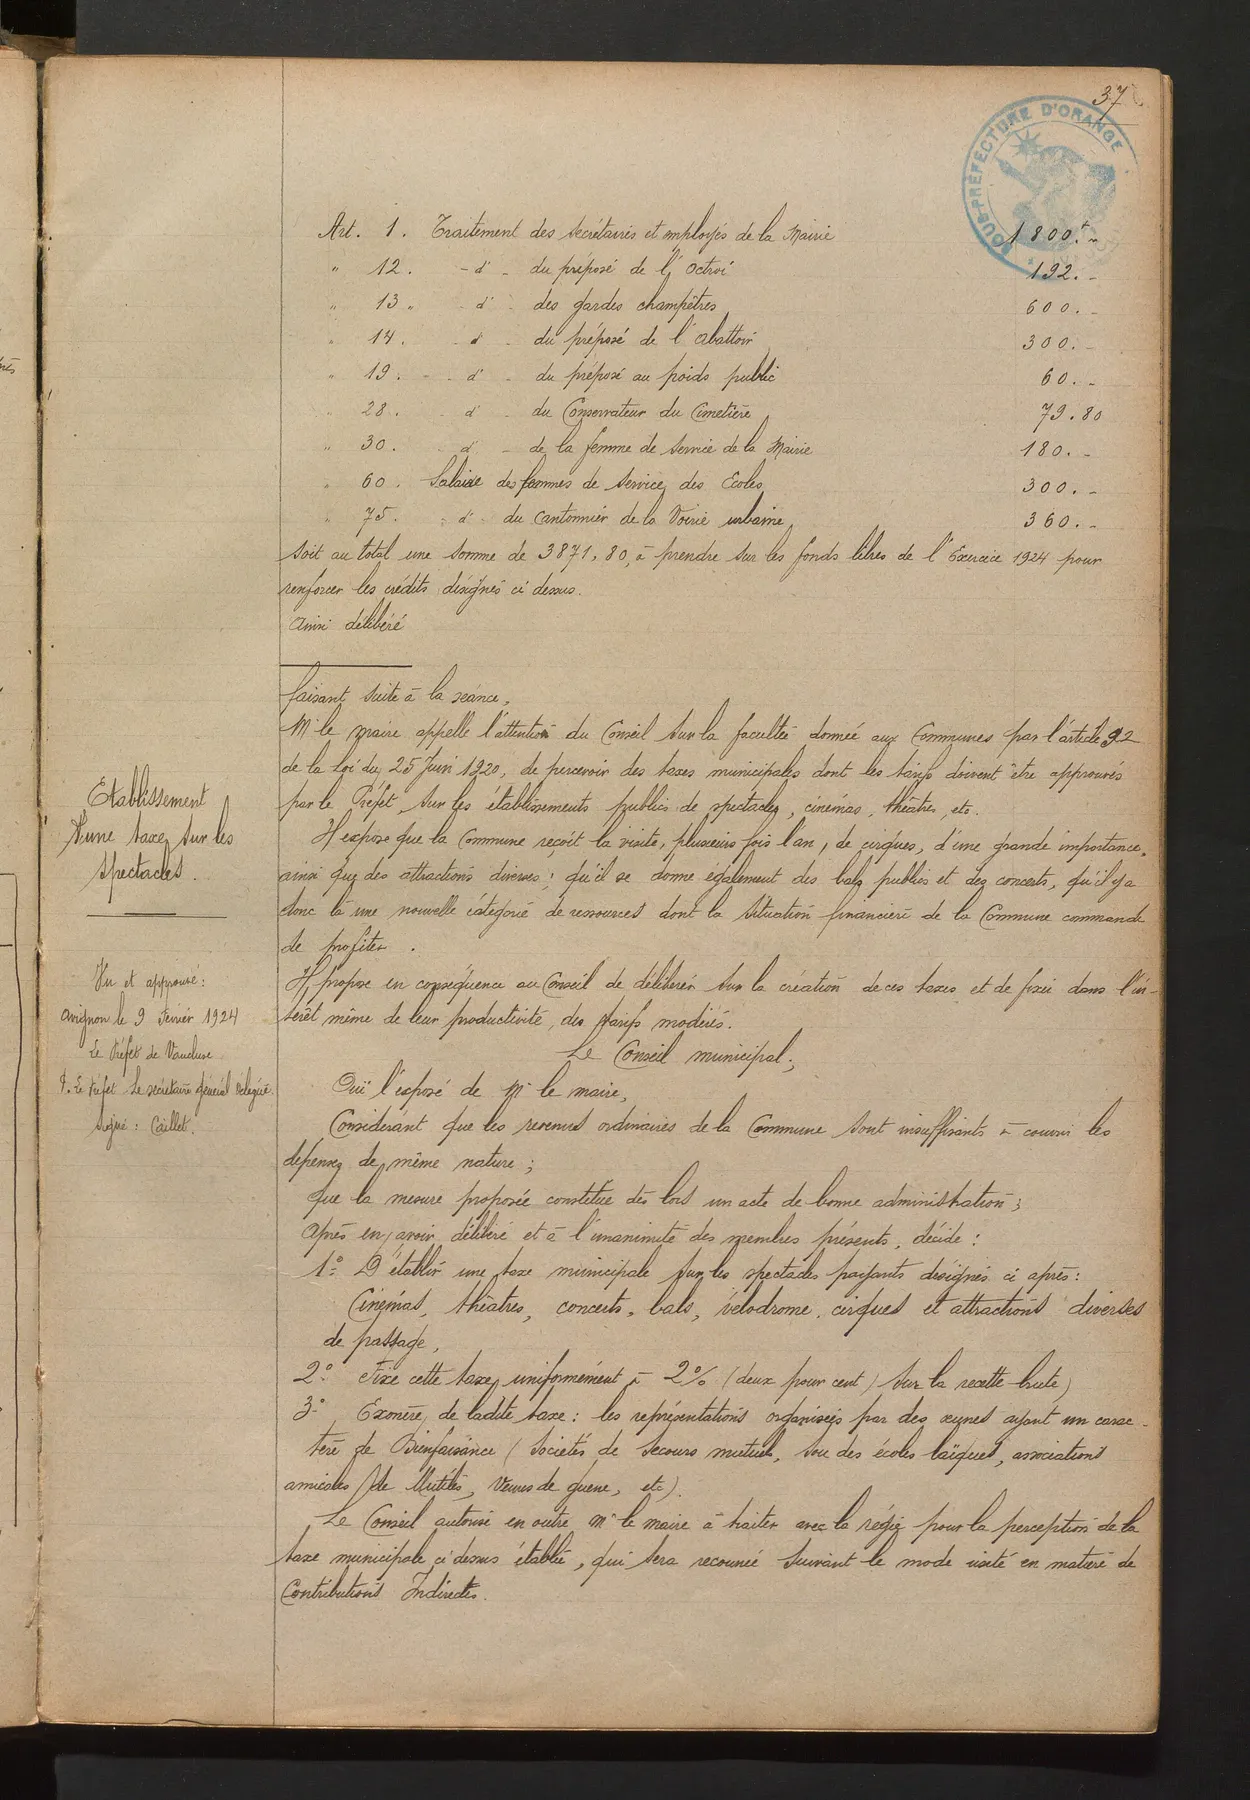 37
SOUS-PRÉFECTURE D'ORANGE
Art. 1. Traitement des secrétaires et employés de la Mairie 1800.f "
" 12. - d° - du préposé de l'octroi 192. -
" 13 " - d° - des gardes champêtres 600. -
" 14. - d° - du préposé de l'abattoir 300. -
" 19. - d° - du préposé au poids public 60. -
" 28. - d° - du Conservateur du Cimetière 79.80
" 30. - d° - de la femme de service de la Mairie 180. -
" 60. Salaire des femmes de service des Ecoles 300. -
" 75. - d° - du cantonnier de la Voirie urbaine 360. -
soit au total une somme de 3871.80, à prendre sur les fonds libres de l'Exercice 1924 pour
renforcer les crédits désignés ci dessus.
Ainsi délibéré
faisant suite à la séance,
Etablissement
d'une taxe sur les
spectacles.
Mr le maire appelle l'attention du Conseil sur la faculté donnée aux Communes par l'article 92
de la loi du 25 Juin 1920, de percevoir des taxes municipales dont les tarifs doivent être approuvés
par le Préfet, sur les établissements publics de spectacles, cinémas, théâtres, etc.
Il expose que la Commune reçoit la visite, plusieurs fois l'an, de cirques, d'une grande importance,
ainsi que des attractions diverses; qu'il se donne également des bals publics et des concerts, qu'il y a
donc là une nouvelle catégorie de ressources dont la situation financière de la Commune commande
de profiter.
Il propose en conséquence au Conseil de délibérer sur la création de ces taxes et de fixer dans l'in-
térêt même de leur productivité, des tarifs modérés.
Vu et approuvé:
Avignon le 9 Février 1924
Le Préfet de Vaucluse
P. Le Préfet Le secrétaire général délégué.
Signé: Caillet.
Le Conseil municipal,
Ouï l'exposé de Mr le maire,
Considérant que les revenus ordinaires de la Commune sont insuffisants à couvrir les
dépenses de même nature;
que la mesure proposée constitue dès lors un acte de bonne administration;
après en avoir délibéré et à l'unanimité des membres présents, décide:
1° D'établir une taxe municipale sur les spectacles payants désignés ci après:
Cinémas, théâtres, concerts, bals, vélodrome, cirques et attractions diverses
de passage,
2° Fixe cette taxe uniformément à 2% (deux pour cent) sur la recette brute)
3° Exonère de ladite taxe: les représentations organisées par des œuvres ayant un carac-
tère de Bienfaisance (Sociétés de secours mutuel, sou des écoles laïques, associations
amicales de Mutilés, Veuves de guerre, etc).
Le Conseil autorise en outre Mr le maire à traiter avec la régie pour la perception de la
taxe municipale ci dessus établie, qui sera recouvrée suivant le mode usité en matière de
Contributions Indirectes.